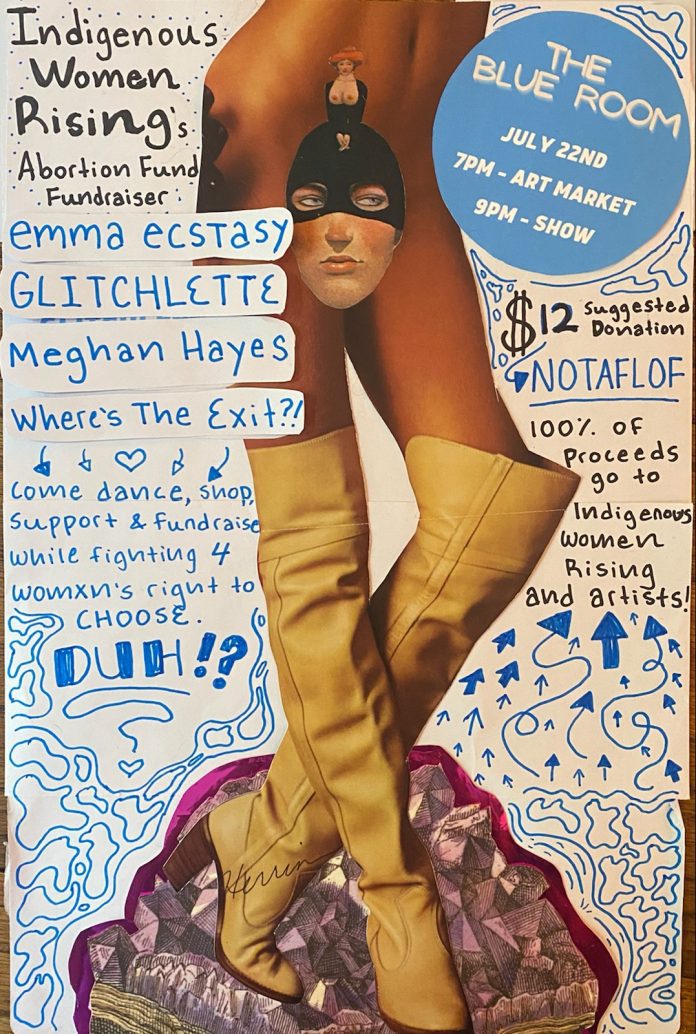 Indigenous
Women
Rising's
Abortion Fund
Fundraiser
emma ecstasy
GLITCHLETTE
Meghan Hayes
Where's The Exit?!
Come dance, shop,
Support & fundraise
while fighting 4
womxn's right to
CHOOSE.
DUH!?
THE
BLUE ROOM
JULY 22ND
7PM - ART MARKET
9PM - SHOW
$12 Suggested
Donation
NOTAFLOF
100% OF
Proceeds
go to
Indigenous
women
Rising
and artists!
Kerrin